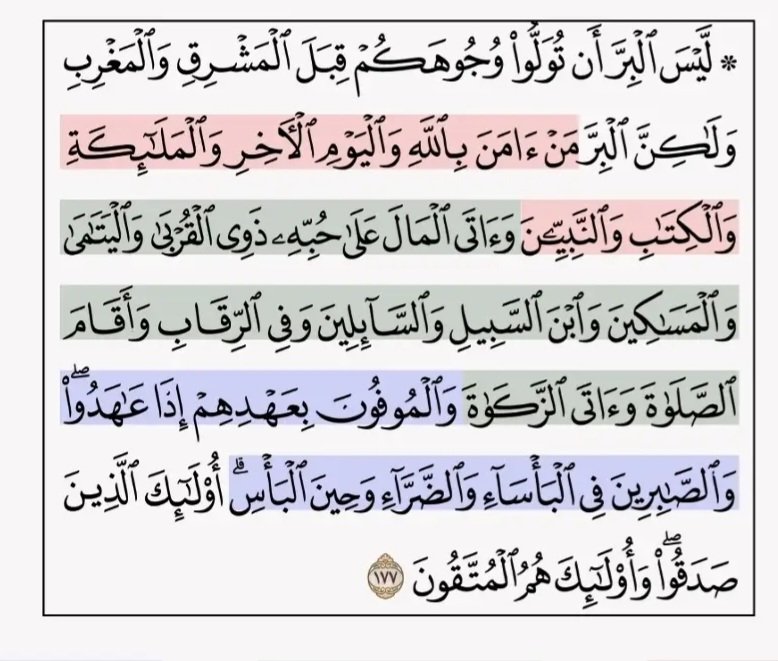 * لَّيْسَ ٱلْبِرَّ أَن تُوَلُّوا۟ وُجُوهَكُمْ قِبَلَ ٱلْمَشْرِقِ وَٱلْمَغْرِبِ
وَلَٰكِنَّ ٱلْبِرَّ مَنْ ءَامَنَ بِٱللَّهِ وَٱلْيَوْمِ ٱلْـَٔاخِرِ وَٱلْمَلَٰٓئِكَةِ
وَٱلْكِتَٰبِ وَٱلنَّبِيِّـۧنَ وَءَاتَى ٱلْمَالَ عَلَىٰ حُبِّهِۦ ذَوِى ٱلْقُرْبَىٰ وَٱلْيَتَٰمَىٰ
وَٱلْمَسَٰكِينَ وَٱبْنَ ٱلسَّبِيلِ وَٱلسَّآئِلِينَ وَفِى ٱلرِّقَابِ وَأَقَامَ
ٱلصَّلَوٰةَ وَءَاتَى ٱلزَّكَوٰةَ وَٱلْمُوفُونَ بِعَهْدِهِمْ إِذَا عَٰهَدُوا۟ۖ
وَٱلصَّٰبِرِينَ فِى ٱلْبَأْسَآءِ وَٱلضَّرَّآءِ وَحِينَ ٱلْبَأْسِۗ أُو۟لَٰٓئِكَ ٱلَّذِينَ
صَدَقُوا۟ۖ وَأُو۟لَٰٓئِكَ هُمُ ٱلْمُتَّقُونَ ١٧٧